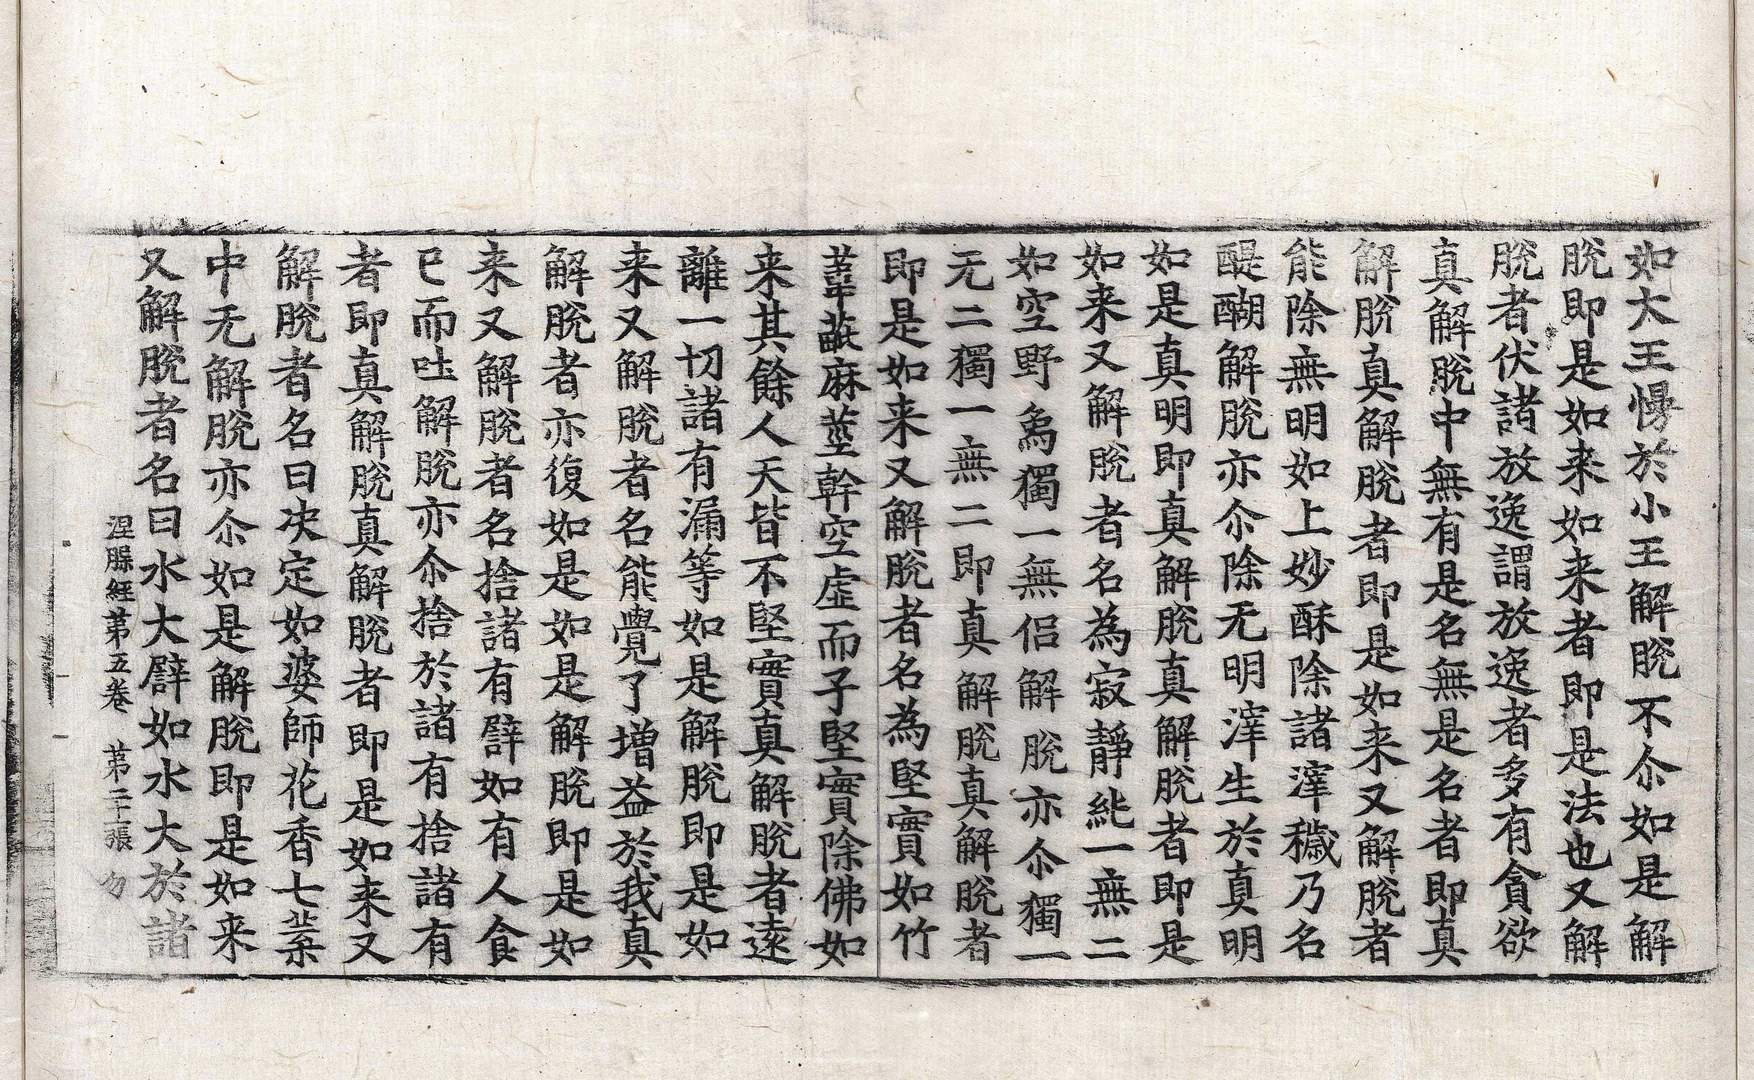 如大王慢於小王解脫不尒如是解
脫即是如来如来者即是法也又解
脫者伏諸放逸謂放逸者多有貪欲
真解脫中無有是名無是名者即真
解脫真解脫者即是如来又解脫者
能除無明如上妙酥除諸滓穢乃名
醍醐解脫亦尒除无明滓生於真明
如是真明即真解脫真解脫者即是
如来又解脫者名為寂靜純一無二
如空野象獨一無侶解脫亦尒獨一
无二獨一無二即真解脫真解脫者
即是如来又解脫者名為堅實如竹
葦蓖麻莖幹空虛而子堅實除佛如
来其餘人天皆不堅實真解脫者遠
離一切諸有漏等如是解脫即是如
来又解脫者名能覺了增益於我真
解脫者亦復如是如是解脫即是如
来又解脫者名捨諸有譬如有人食
已而吐解脫亦尒捨於諸有捨諸有
者即真解脫真解脫者即是如来又
解脫者名曰决定如婆師花香七葉
中无解脫亦尒如是解脫即是如来
又解脫者名曰水大譬如水大於諸
涅槃經第五卷 第二十張 勿